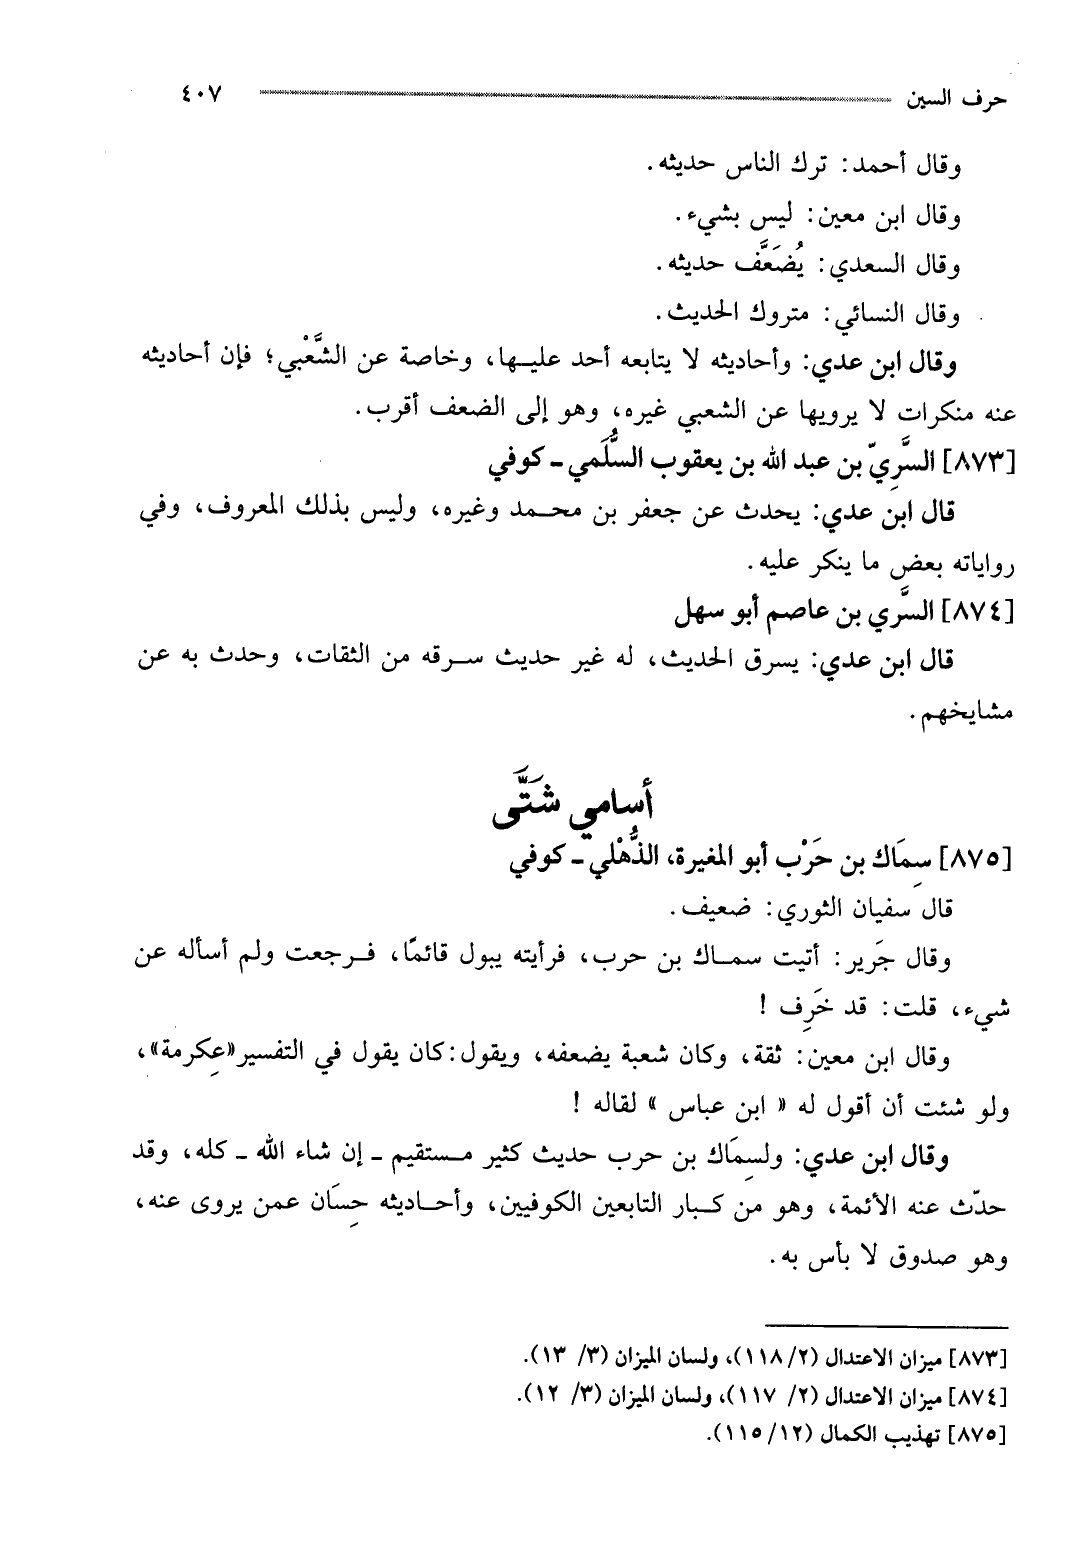 حرف السين ٤٠٧
وقال أحمد: ترك الناس حديثه.
وقال ابن معين: ليس بشيء.
وقال السعدي: يُضَعَّف حديثه.
وقال النسائي: متروك الحديث.
وقال ابن عدي: وأحاديثه لا يتابعه أحد عليها، وخاصة عن الشَّعْبي؛ فإن أحاديثه
عنه منكرات لا يرويها عن الشعبي غيره، وهو إلى الضعف أقرب.
[٨٧٣] السَّرِيّ بن عبد الله بن يعقوب السُّلَمي ـ كوفي
قال ابن عدي: يحدث عن جعفر بن محمد وغيره، وليس بذلك المعروف، وفي
رواياته بعض ما ينكر عليه.
[٨٧٤] السَّري بن عاصم أبو سهل
قال ابن عدي: يسرق الحديث، له غير حديث سرقه من الثقات، وحدث به عن
مشايخهم.
أسامي شَتَّى
[٨٧٥] سِمَاك بن حَرْب أبو المغيرة، الذُّهْلي ـ كوفي
قال سفيان الثوري: ضعيف.
وقال جَرير: أتيت سماك بن حرب، فرأيته يبول قائمًا، فرجعت ولم أسأله عن
شيء، قلت: قد خَرِف !
وقال ابن معين: ثقة، وكان شعبة يضعفه، ويقول: كان يقول في التفسير «عِكرمة»،
ولو شئت أن أقول له « ابن عباس » لقاله !
وقال ابن عدي: ولسِمَاك بن حرب حديث كثير مستقيم ـ إن شاء الله ـ كله، وقد
حدّث عنه الأئمة، وهو من كبار التابعين الكوفيين، وأحاديثه حِسَان عمن يروى عنه،
وهو صدوق لا بأس به.
[٨٧٣] ميزان الاعتدال (٢/ ١١٨)، ولسان الميزان (٣/ ١٣).
[٨٧٤] ميزان الاعتدال (٢/ ١١٧)، ولسان الميزان (٣/ ١٢).
[٨٧٥] تهذيب الكمال (١٢/ ١١٥).